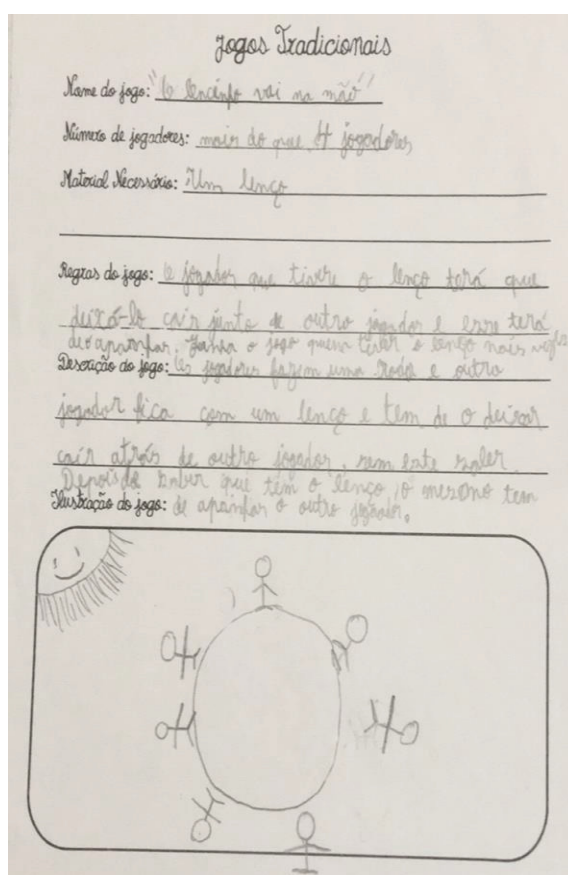 Jogos Tradicionais
Nome do jogo: "O lencinho vai na mão"
Número de jogadores: mais do que 4 jogadores
Material Necessário: Um lenço
Regras do jogo: O jogador que tivere o lenço terá que
deixá-lo cair junto de outro jogador e esse terá
de o apanhar. Ganha o jogo quem tiver o lenço mais vezes
Descrição do jogo: Os jogadores fazem uma roda e outro
jogador fica com um lenço e tem de o deixar
cair atrás de outro jogador, sem este saber.
Depois de saber que tem o lenço, o mesmo tem
Ilustração do jogo: de apanhar o outro jogador.